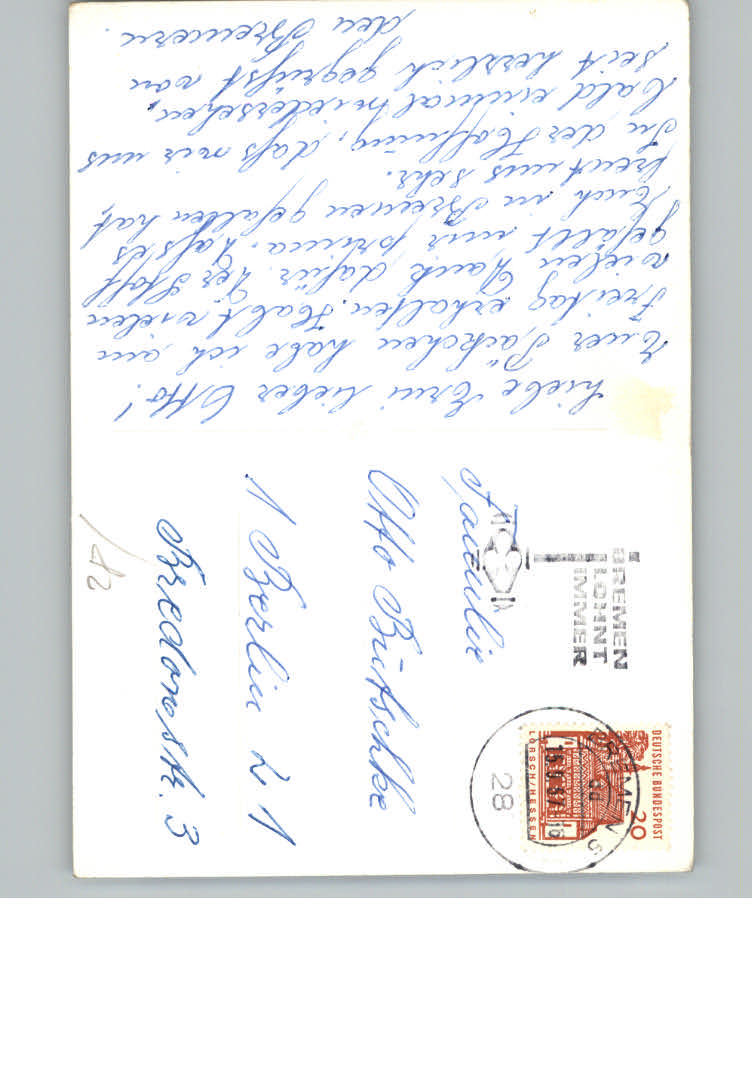 Liebe Erni lieber Otto!
Euer Päckchen habe ich am
Freitag erhalten. Habt vielen
vielen Dank dafür. Der Stoff
gefällt mir prima. Dass es
Euch in Bremen gefallen hat,
freut uns sehr.
In der Hoffnung, dass wir uns
bald einmal wiedersehen,
seit herzlich gegrüsst von
den Bremern.
Familie
Otto Bütschke
1 Berlin 21
Bredowstr. 3
BREMEN
LOHNT
IMMER
DEUTSCHE BUNDESPOST
20
LORSCH/HESSEN
BREMEN 5
28